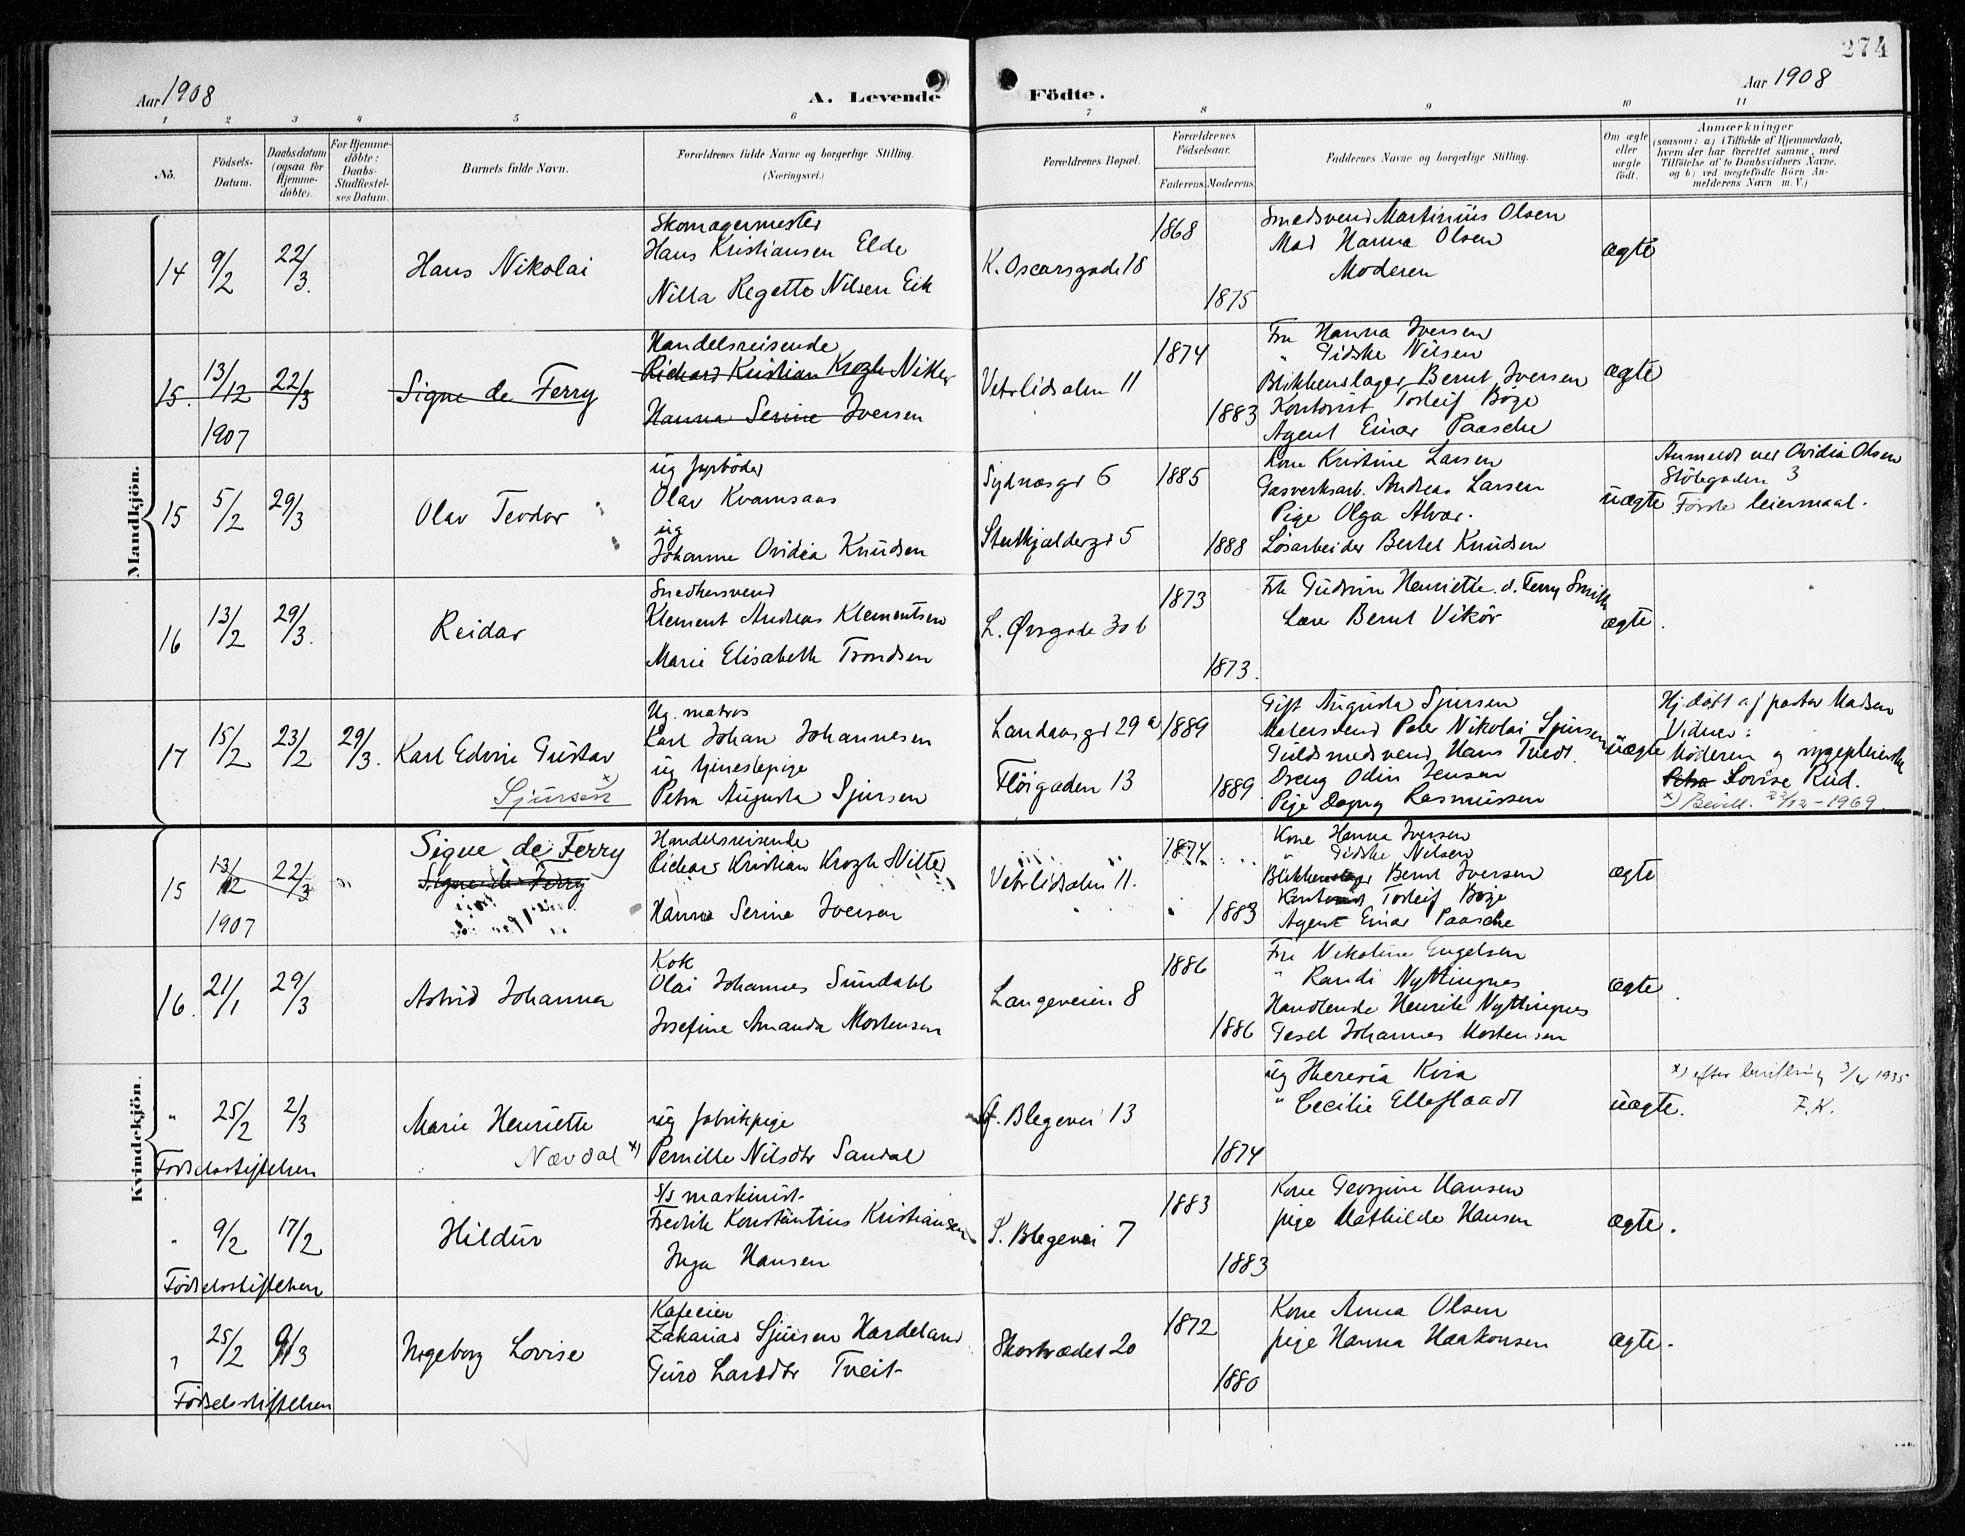 274
Aar 1908
A. Levende Födte.
Aar 1908
1 2 3 4 5 6 7 8 9 10 11
No.
Födsels-
Datum.
Daabsdatum
(ogsaa for
Hjemme-
döbte).
For Hjemme-
döbte:
Daabs-
Stadfæstel-
ses Datum.
Barnets fulde Navn.
Forældrenes fulde Navne og borgerlige Stilling.
(Næringsvei.)
Forældrenes Bopæl.
Forældrenes
Födselsaar.
Faderens Moderens
Faddernes Navne og borgerlige Stilling.
Om ægte
eller
uægte
født.
Anmærkninger
(saasom: a) i Tilfælde af Hjemmedaab,
hvem der har forrettet samme, med
Tilföielse af to Daabsvidners Navne,
og b) ved uægtefödte Börn An-
melderens Navn m. V.)
Mandkjön.
14 9/2 22/3. Hans Nikolai
Skomagermester
Hans Kristiansen Elde
Nilla Regette Nilsen Eik
K. Oscarsgade 18
1868
1875
Smedsvend Martinius Olsen
Mad Hanna Olsen
Moderen
ægte
15. 13/12 22/3 Signe de Ferry
1907
Handelsreisende
Rickard Kristian Krogh Nitter
Hanna Serine Iversen
Vetrlidsalm 11
1874
1883
Fru Hanna Iversen
" Gidske Nilsen
Blikkenslager Bernt Iversen
Kontorist Torleif Böje
Agent Einar Paasche
ægte
15 5/2 29/3 Olav Teodor
ug fyrböder
Olav Kvamsaas
ug
Johanne Ovidia Knudsen
Sydnæsgd 6
Stenkjeldergd 5
1885
1888
Kone Kristine Larsen
Gasverksarb. Andreas Larsen
Pige Olga Alvær.
Løsarbeider Bertel Knudsen
uægte
Anmeldt ved Ovidia Olsen
Stölegaden 3
Første leiermaal.
16 13/2 29/3. Reidar
Snedkersvend
Klement Andreas Klementsen
Marie Elisabeth Trondsen
L. Øvregade 30 b
1873
1873.
Frk Gudrun Henriette d. Ferry Smith
Lære Bernt Vikör
ægte.
17 15/2 23/2 29/3. Karl Edvin Gustav
Sjursen x)
Ug. matros
Karl Johan Johannesen
ug tjenestepige
Petra Augusta Sjursen
Landaasgd 29 a
Fløigaden 13
1889
1889
Gift Augusta Sjursen
Malersvend Peder Nikolai Sjursen
Guldsmedsvend Hans Tvedt.
Dreng Odin Jensen
Pige Dagny Rasmussen
uægte
Hj.døbt af pastor Madsen
Vidner:
Moderen og sygepleierske
Petra Lovise Rud.
x) Bevill. 23/12-1969.
Kvindekjön.
15 13/12 22/3 Signe de Ferry
Signe de Ferry
1907
Handelsreisende
Rickard Kristian Krogh Nitter
Hanna Serine Iversen
Vetrlidsalm 11.
1874
1883
Kone Hanna Iversen
" Gidske Nilsen
Blikkenslager Bernt Iversen
Kontorist Torleif Böje
Agent Einar Paasche
ægte
16. 21/1 29/3 Astrid Johanna
Kok
Olai Johannes Sundahl
Josefine Amanda Mortensen
Langeveien 8
1886
1886
Fru Nikoline Engelsen
" Randi Nyttingnes
Handlende Henrik Nyttingnes
Gesel Johannes Mortensen
ægte.
" 25/2 2/3 Marie Henriette
Nævdal x)
Fødselsstiftelsen
ug fabrikpige
Pernille Nilsdtr Sandal
Blegevei 13
1874
ug Theresia Kira
" Cecilie Elleflaadt
uægte.
x) efter bevilling 3/4 1935
F.K.
" 9/2 17/2 Hildur
Fødselsstiftelsen
S/S maskinist
Fredrik Konstantius Kristiansen
Inga Hansen
S. Blegevei 7
1883
1883
Kone Georgine Hansen
pige Mathilde Hansen
ægte.
" 25/2 9/3 Ingeborg Lovise
Fødselsstiftelsen
Kafeeier
Zakarias Sjursen Hardeland
Guro Larsdtr Tveit
Skostrædet 20
1872
1880
Kone Anna Olsen
pige Hanna Haakonsen
ægte.